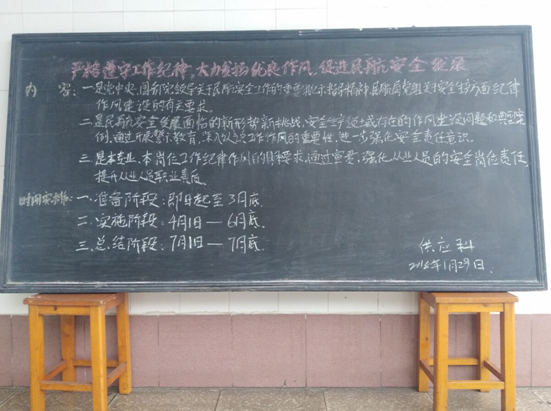 严格遵守工作纪律,大力发扬优良作风,促进民航安全发展
内 容:一是党中央、国务院领导关于民航安全工作的重要批示指示精神,局党组关于安全生产方面纪律
作风建设的有关要求。
二是民航安全发展面临的新形势新挑战,安全生产领域存在的作风建设问题和典型案
例,通过开展警示教育,深入认识工作作风的重要性,进一步强化安全责任意识。
三是本专业、本岗位工作纪律作风的具体要求,通过宣贯,强化从业人员的安全岗位责任,
提升从业人员职业素质。
时间安排:一.准备阶段:即日起至3月底.
二.实施阶段:4月1日—6月底.
三.总结阶段:7月1日—7月底.
供应科
年1月29日.